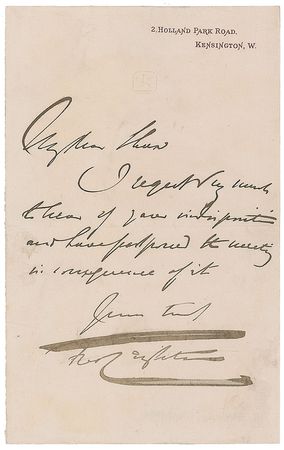 2, Holland Park Road,
Kensington, W.
My dear Shaw
I regret very much
to hear of your indisposition
and have postponed the meeting
in consequence of it
Yours truly
Fred Leighton